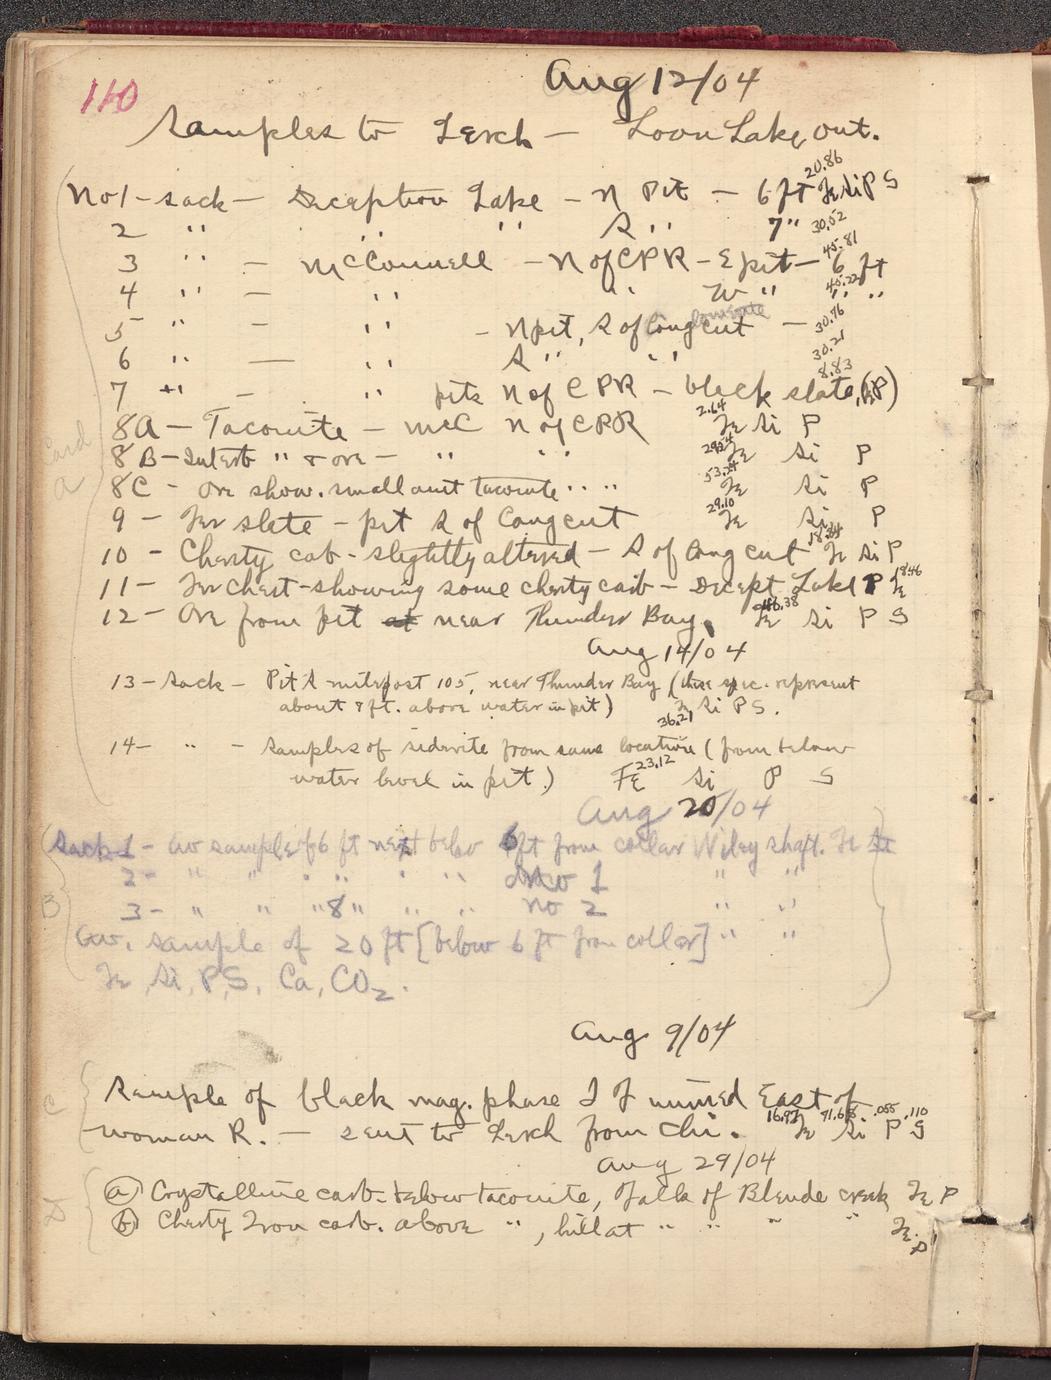 110
Aug 12/04
Samples to Lerch — Loon Lake out.
20.86
No 1 - sack — Deception Lake - N Pit — 6 ft Fe Si P S
2 " " " S " 7 " 30.52
3 " — McConnell — N of CPR - E pit — 6 ft 45.81
4 " — " " W " " "
5 - " — " - N pit, S of Cong cut — 30.76
6 " — " S " " 30.21
8.83
7 " — " pits N of CPR — black slate, (Fe P)
8A — Taconite — McC N of CPR 2.64 Fe Si P
8B — Interb " & ore — " " Fe Si P
8C - Ore show. small amt taconite " " 53.24 Fe Si P
9 — Fer slate - pit S of Cong cut 29.10 Fe Si P
10 - Cherty carb - slightly altered — S of Cong cut Fe Si P
11 — Fer Chert - showing some cherty carb - Decept Lake P Fe 18.46
12 - Ore from pit near Thunder Bay. 46.38 Fe Si P S
Aug 14/04
13 - Sack — Pit S milepost 105, near Thunder Bay (these spec. represent
about 8 ft. above water in pit) Fe Si P S.
36.21
14 - " — Samples of siderite from same location (from below
water level in pit.) Fe 23.12 Si P S
Aug 20/04
Sack 1 - av sample of 6 ft next below 6 ft from collar Wiley shaft. Fe
2 - " " " " " " No 1 " "
3 - " " " 8 " " " No 2 " "
B
Av. sample of 20 ft [below 6 ft from collar] " "
Fe, Si, P, S, Ca, CO2.
Aug 9/04
C
Sample of black mag. phase I F mined East of
Woman R. — sent to Lerch from Chi. 16.97 Fe Si .055 P .110 S
Aug 29/04
D
(a) Crystalline carb. below taconite, Falls of Blende creek Fe P
(b) Cherty Iron carb. above " , hill at " " " " Fe. P